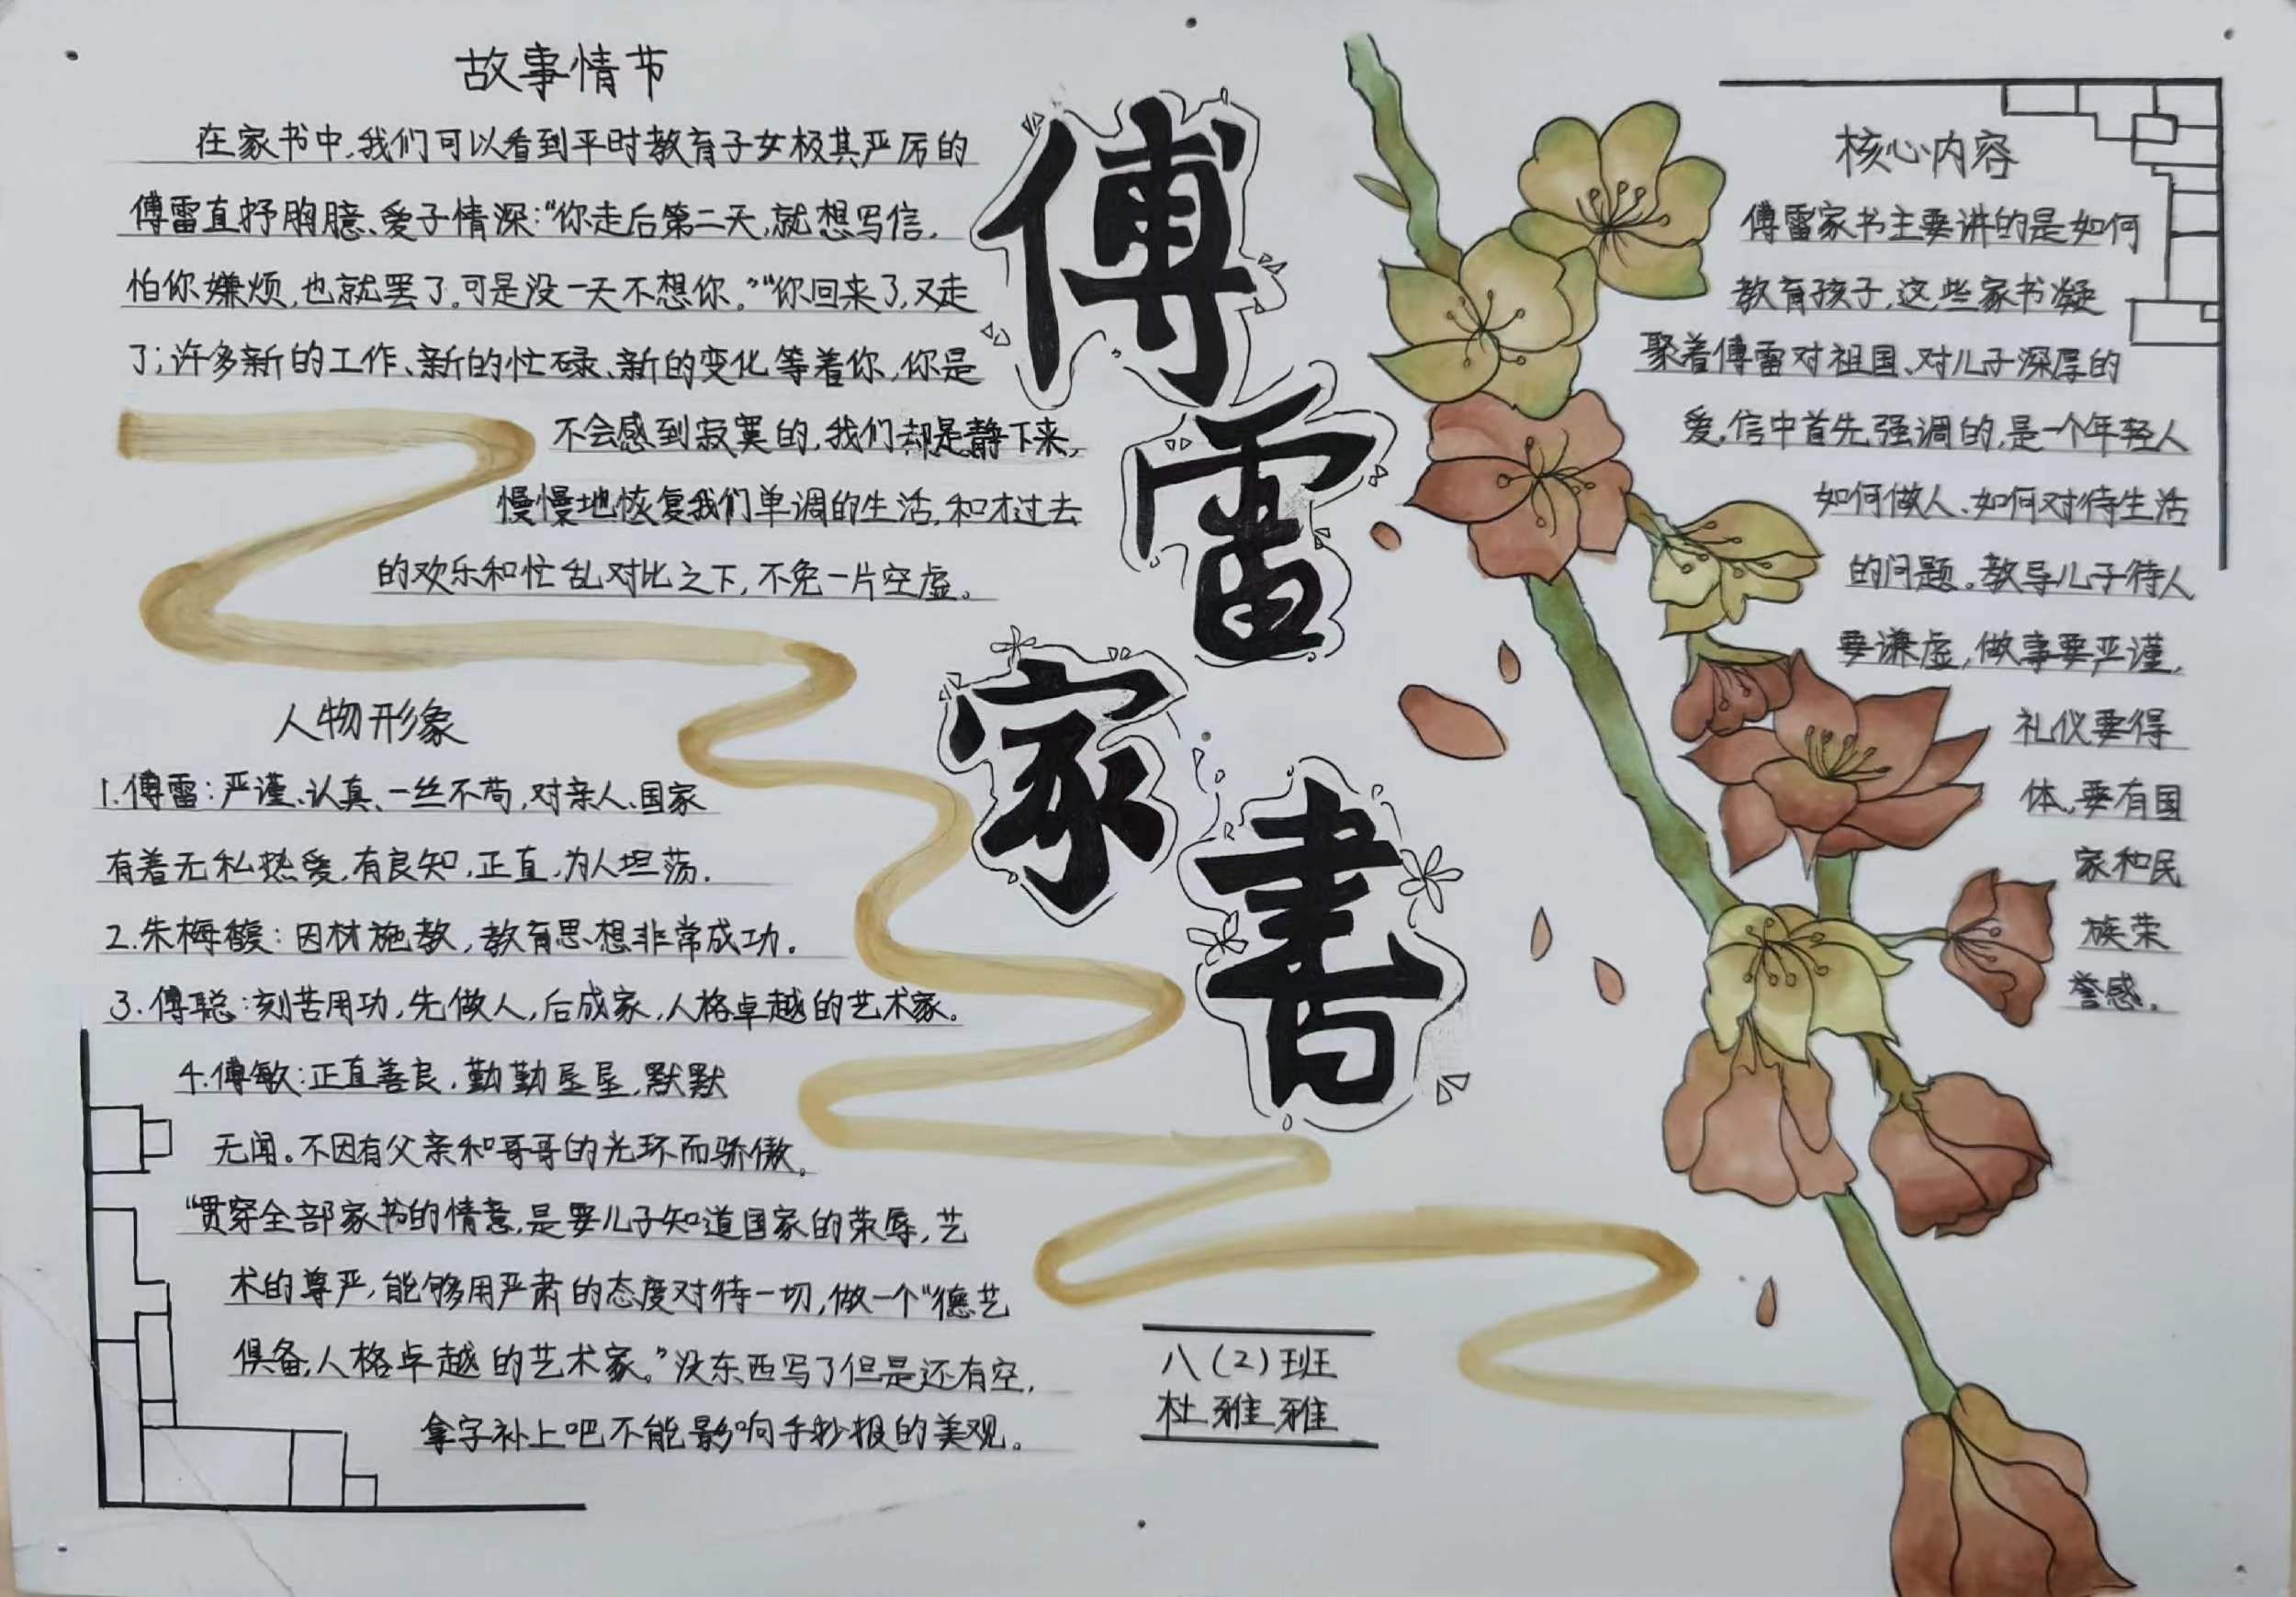 故事情节
在家书中,我们可以看到平时教育子女极其严厉的
傅雷直抒胸臆、爱子情深:“你走后第二天,就想写信,
怕你嫌烦,也就罢了。可是没一天不想你。”“你回来了,又走
了;许多新的工作、新的忙碌、新的变化等着你,你是
不会感到寂寞的,我们却是静下来,
慢慢地恢复我们单调的生活,和才过去
的欢乐和忙乱对比之下,不免一片空虚。
人物形象
1.傅雷:严谨、认真、一丝不苟,对亲人、国家
有着无私热爱,有良知,正直,为人坦荡.
2.朱梅馥:因材施教,教育思想非常成功.
3.傅聪:刻苦用功,先做人,后成家,人格卓越的艺术家。
4.傅敏:正直善良,勤勤垦垦,默默
无闻。不因有父亲和哥哥的光环而骄傲。
“贯穿全部家书的情意,是要儿子知道国家的荣辱,艺
术的尊严,能够用严肃的态度对待一切,做一个“德艺
俱备,人格卓越的艺术家。”没东西写了但是还有空,
拿字补上吧不能影响手抄报的美观。
傅
雷
家
書
八(2)班
杜雅雅
核心内容
傅雷家书主要讲的是如何
教育孩子,这些家书凝
聚着傅雷对祖国、对儿子深厚的
爱,信中首先强调的,是一个年轻人
如何做人、如何对待生活
的问题。教导儿子待人
要谦虚,做事要严谨,
礼仪要得
体,要有国
家和民
族荣
誉感.